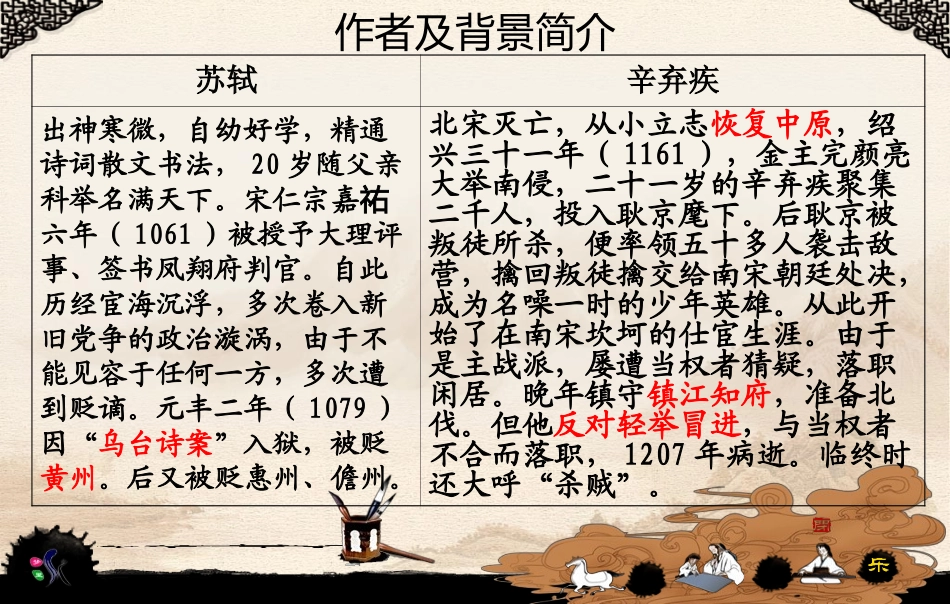 作者及背景简介
苏轼
出神寒微，自幼好学，精通
诗词散文书法， 20 岁随父亲
科举名满天下。宋仁宗嘉祐
六年（ 1061 ）被授予大理评
事、签书凤翔府判官。自此
历经宦海沉浮，多次卷入新
旧党争的政治漩涡，由于不
能见容于任何一方，多次遭
到贬谪。元丰二年（ 1079 ）
因“乌台诗案”入狱，被贬
黄州。后又被贬惠州、儋州。
辛弃疾
北宋灭亡，从小立志恢复中原，绍
兴三十一年（ 1161 ），金主完颜亮
大举南侵，二十一岁的辛弃疾聚集
二千人，投入耿京麾下。后耿京被
叛徒所杀，便率领五十多人袭击敌
营，擒回叛徒擒交给南宋朝廷处决，
成为名噪一时的少年英雄。从此开
始了在南宋坎坷的仕宦生涯。由于
是主战派，屡遭当权者猜疑，落职
闲居。晚年镇守镇江知府，准备北
伐。但他反对轻举冒进，与当权者
不合而落职， 1207 年病逝。临终时
还大呼“杀贼”。
乐